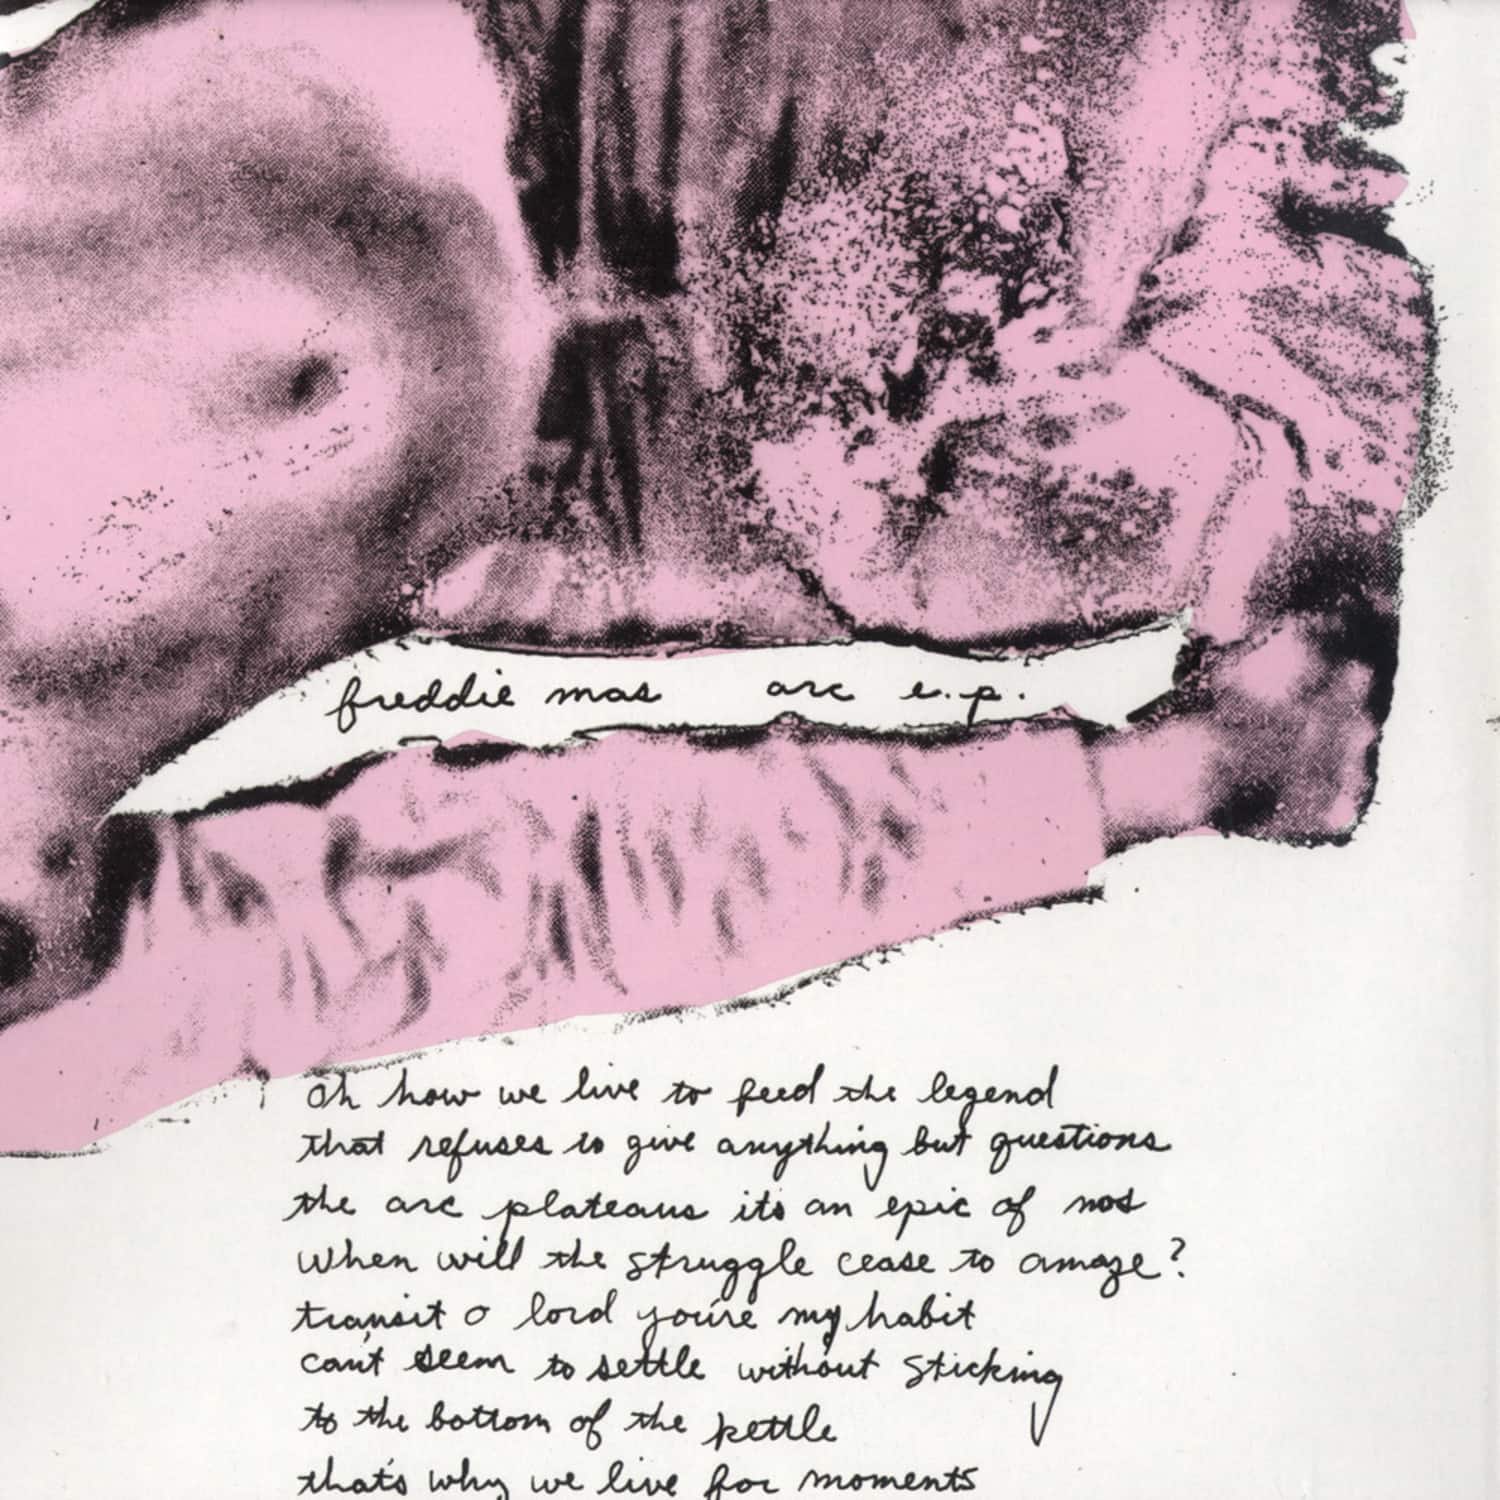 freddie mas arc e.p.
oh how we live to feed the legend
that refuses to give anything but questions
the arc plateaus its an epic of nos
when will the struggle cease to amaze?
transit o lord you're my habit
can't seem to settle without sticking
to the bottom of the kettle
that's why we live for moments